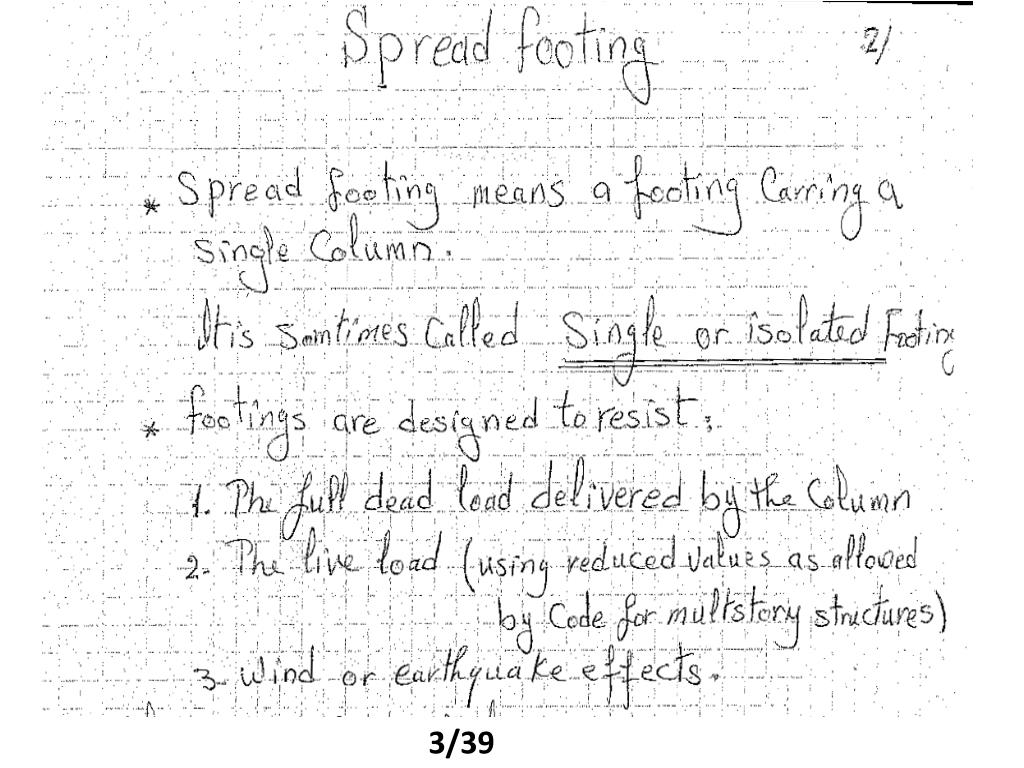 Spread footing
2/
* Spread footing means a footing Carring a
single Column.
It is somtimes Called Single or isolated Footing
* footings are designed to resist:
1. The full dead load delivered by the Column
2- The live load (using reduced values as allowed
by Code for multstory structures)
3- Wind or earthquake effects.
3/39